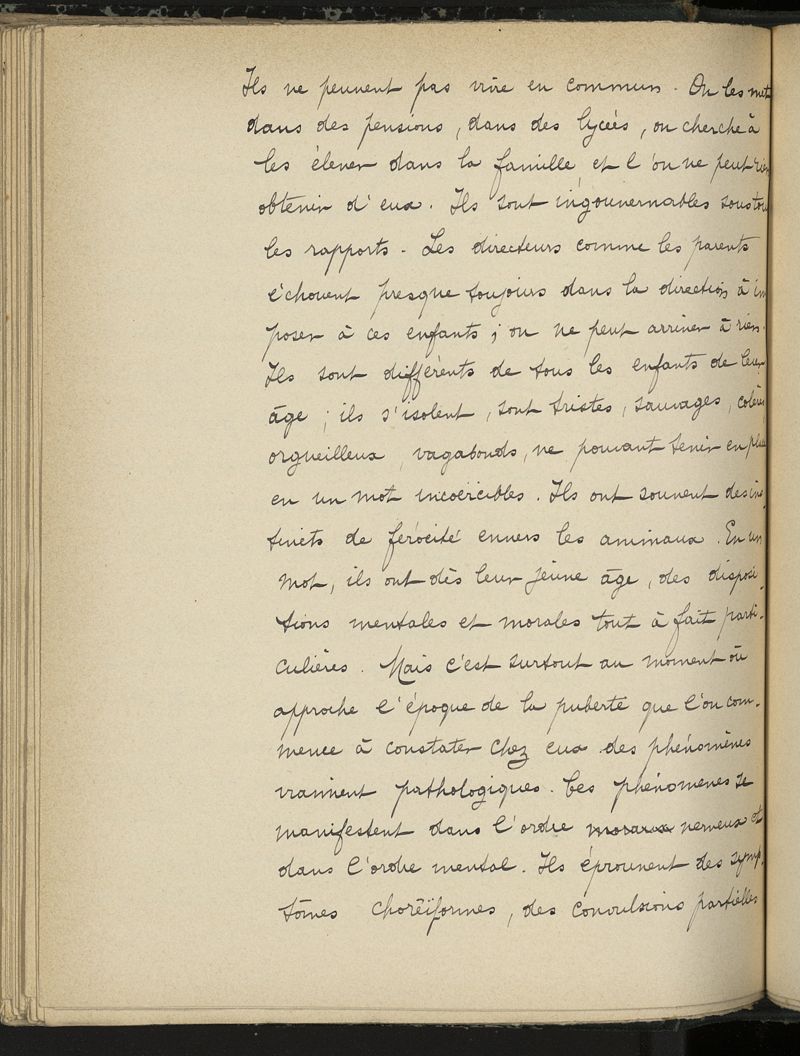 Ils ne peuvent pas vivre en commun. On les met
dans des pensions, dans des lycées, on cherche à
les élever dans la famille et l'on ne peut rien
obtenir d'eux. Ils sont ingouvernables sous tou
les rapports. Les directeurs comme les parents
échouent presque toujours dans la direction à im
poser à ces enfants; on ne peut arriver à rien.
Ils sont différents de tous les enfants de leur
âge; ils s'isolent, sont tristes, sauvages, colères
orgueilleux, vagabonds, ne pouvant tenir en place
en un mot incoërcibles. Ils ont souvent des ins
tincts de férocité envers les animaux. En un
mot, ils ont dès leur jeune âge, des disposi-
tions mentales et morales tout à fait parti-
culières. Mais c'est surtout au moment où
approche l'époque de la puberté que l'on com-
mence à constater chez eux des phénomènes
vraiment pathologiques. Ces phénomenes se
manifestent dans l'ordre moraux nerveux et
dans l'ordre mental. Ils éprouvent des symp-
tômes choréïformes, des convulsions partielles